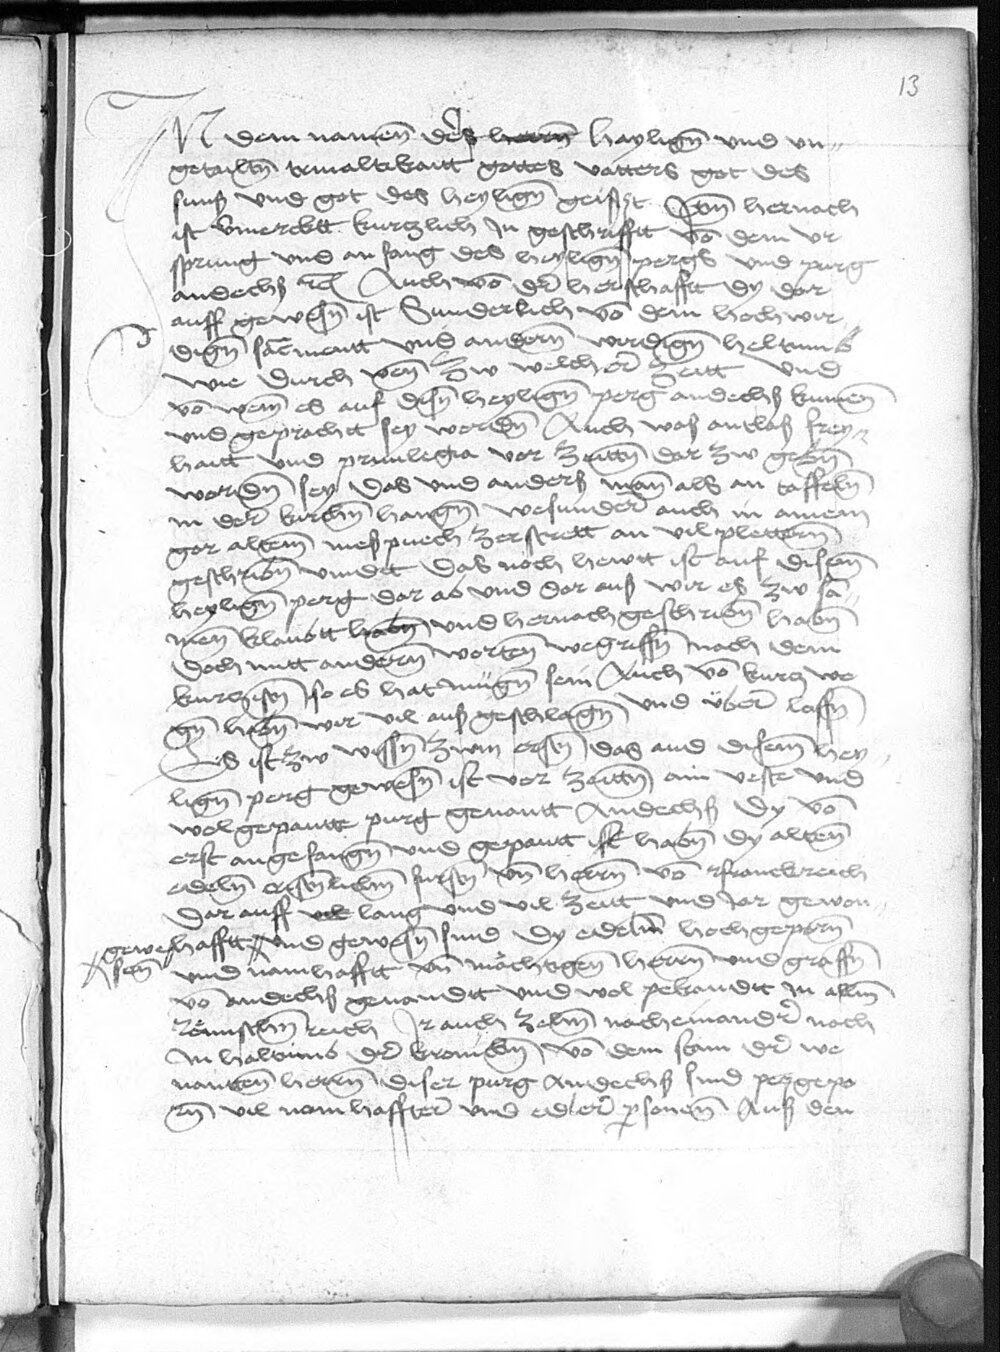 13
IN dem namen der herrn hayligen und un-
getailten trivaltikaitt gottes vatters got des
suns und got des heyligen geistzt. Item hernach
ist vmerckt kurtzlich In geschrifft vo dem ur
sprung und anfang des heyligen pergs und purg
andechs Auch vo der herschafft dy dar
auff gewesen ist Sunderlich vo dem hochwir
digen sacment und andern wirdigen heltumb
wie durch wen zw welcher zeitt und
vo wem es auf disen heyligen perg andechs kumen
und gepracht sey worden Auch was antlas frey
haitt und privilegia vor zeitten dar zw geben
worden sey Das und anders man als an taffeln
in der kirchen hangen wesunder auch in ainem
gar alten mespuech zerstrett an vil plettern
geschriben vindet Das noch hewtt ist auf disem
heyligen perg dar ab und dar aus wir es zw sa-
men klaubtt haben und hernach geschriben haben
Doch mitt andern worten wegriffen nach dem
kurtzisten so es hat mügen sein Auch vo kurtz we
gen haben wir vil aus geschlagen und über lassen
Es ist zw wissen zwm ersten das auf disem hey-
ligen perg gewesen ist vor zeitten ain veste und
wolgepautte purg genantt Andechs Dy vo
erst angefangen und gepautt ist haben dy alten
edeln fursten vn herrn vo franckreich
Dar auff vil lang und vil zeit und Jar gewon-
hafftt und gewesen sind Dy edelen hochgeporn
gewe
sen
und namhafft vn mächtigen herrn und graffen
vo andechs genandtt und wol pekandtt In allem
römischen reich Ir auch zelen nacheinander noch
In haltums der kroniken vo dem stam der we
nanten herrn diser purg Andechs sind pey gepo
rn vil namhaffter und edler psonen Aus den